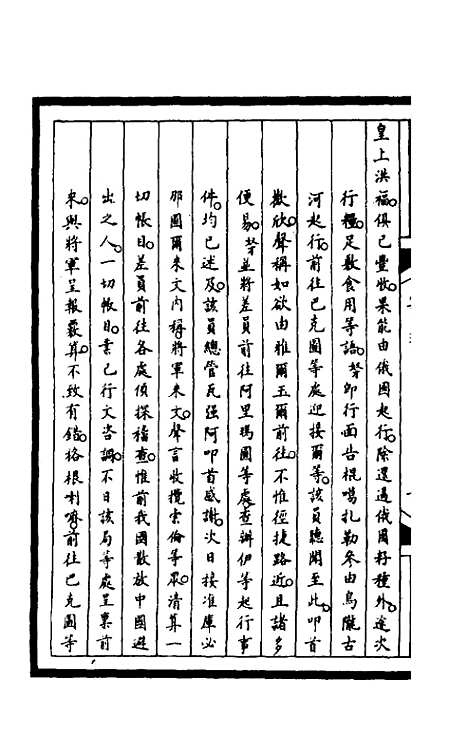 皇上洪福。俱已豐收。果能由俄國起行。除還過俄國籽種外。途次
行糧。足敷食用等語。茕即行面告棍噶扎勒參由烏隴古
河起行。前往巴克圖等處迎接爾等。該員聽聞至此。叩首
歡欣。聲稱如欲由雅爾玉爾前往。不惟徑捷路近。且諸多
便易。茕並將差員前往阿里瑪圖等處。查辦伊等起行事
件。均已述及。該員總管瓦强阿叩首感謝。次日接准庫必
那圖爾來文內稱。將軍來文。聲言收攬索倫等眾。清算一
切帳目。差員前往各處偵探稽查。惟前我國散放中國避
出之人。一切帳目。業已行文咨調。不日該局等處呈稟前
來。與將軍呈報覈算。不致有錯。格根刺嘛。前往巴克圖等